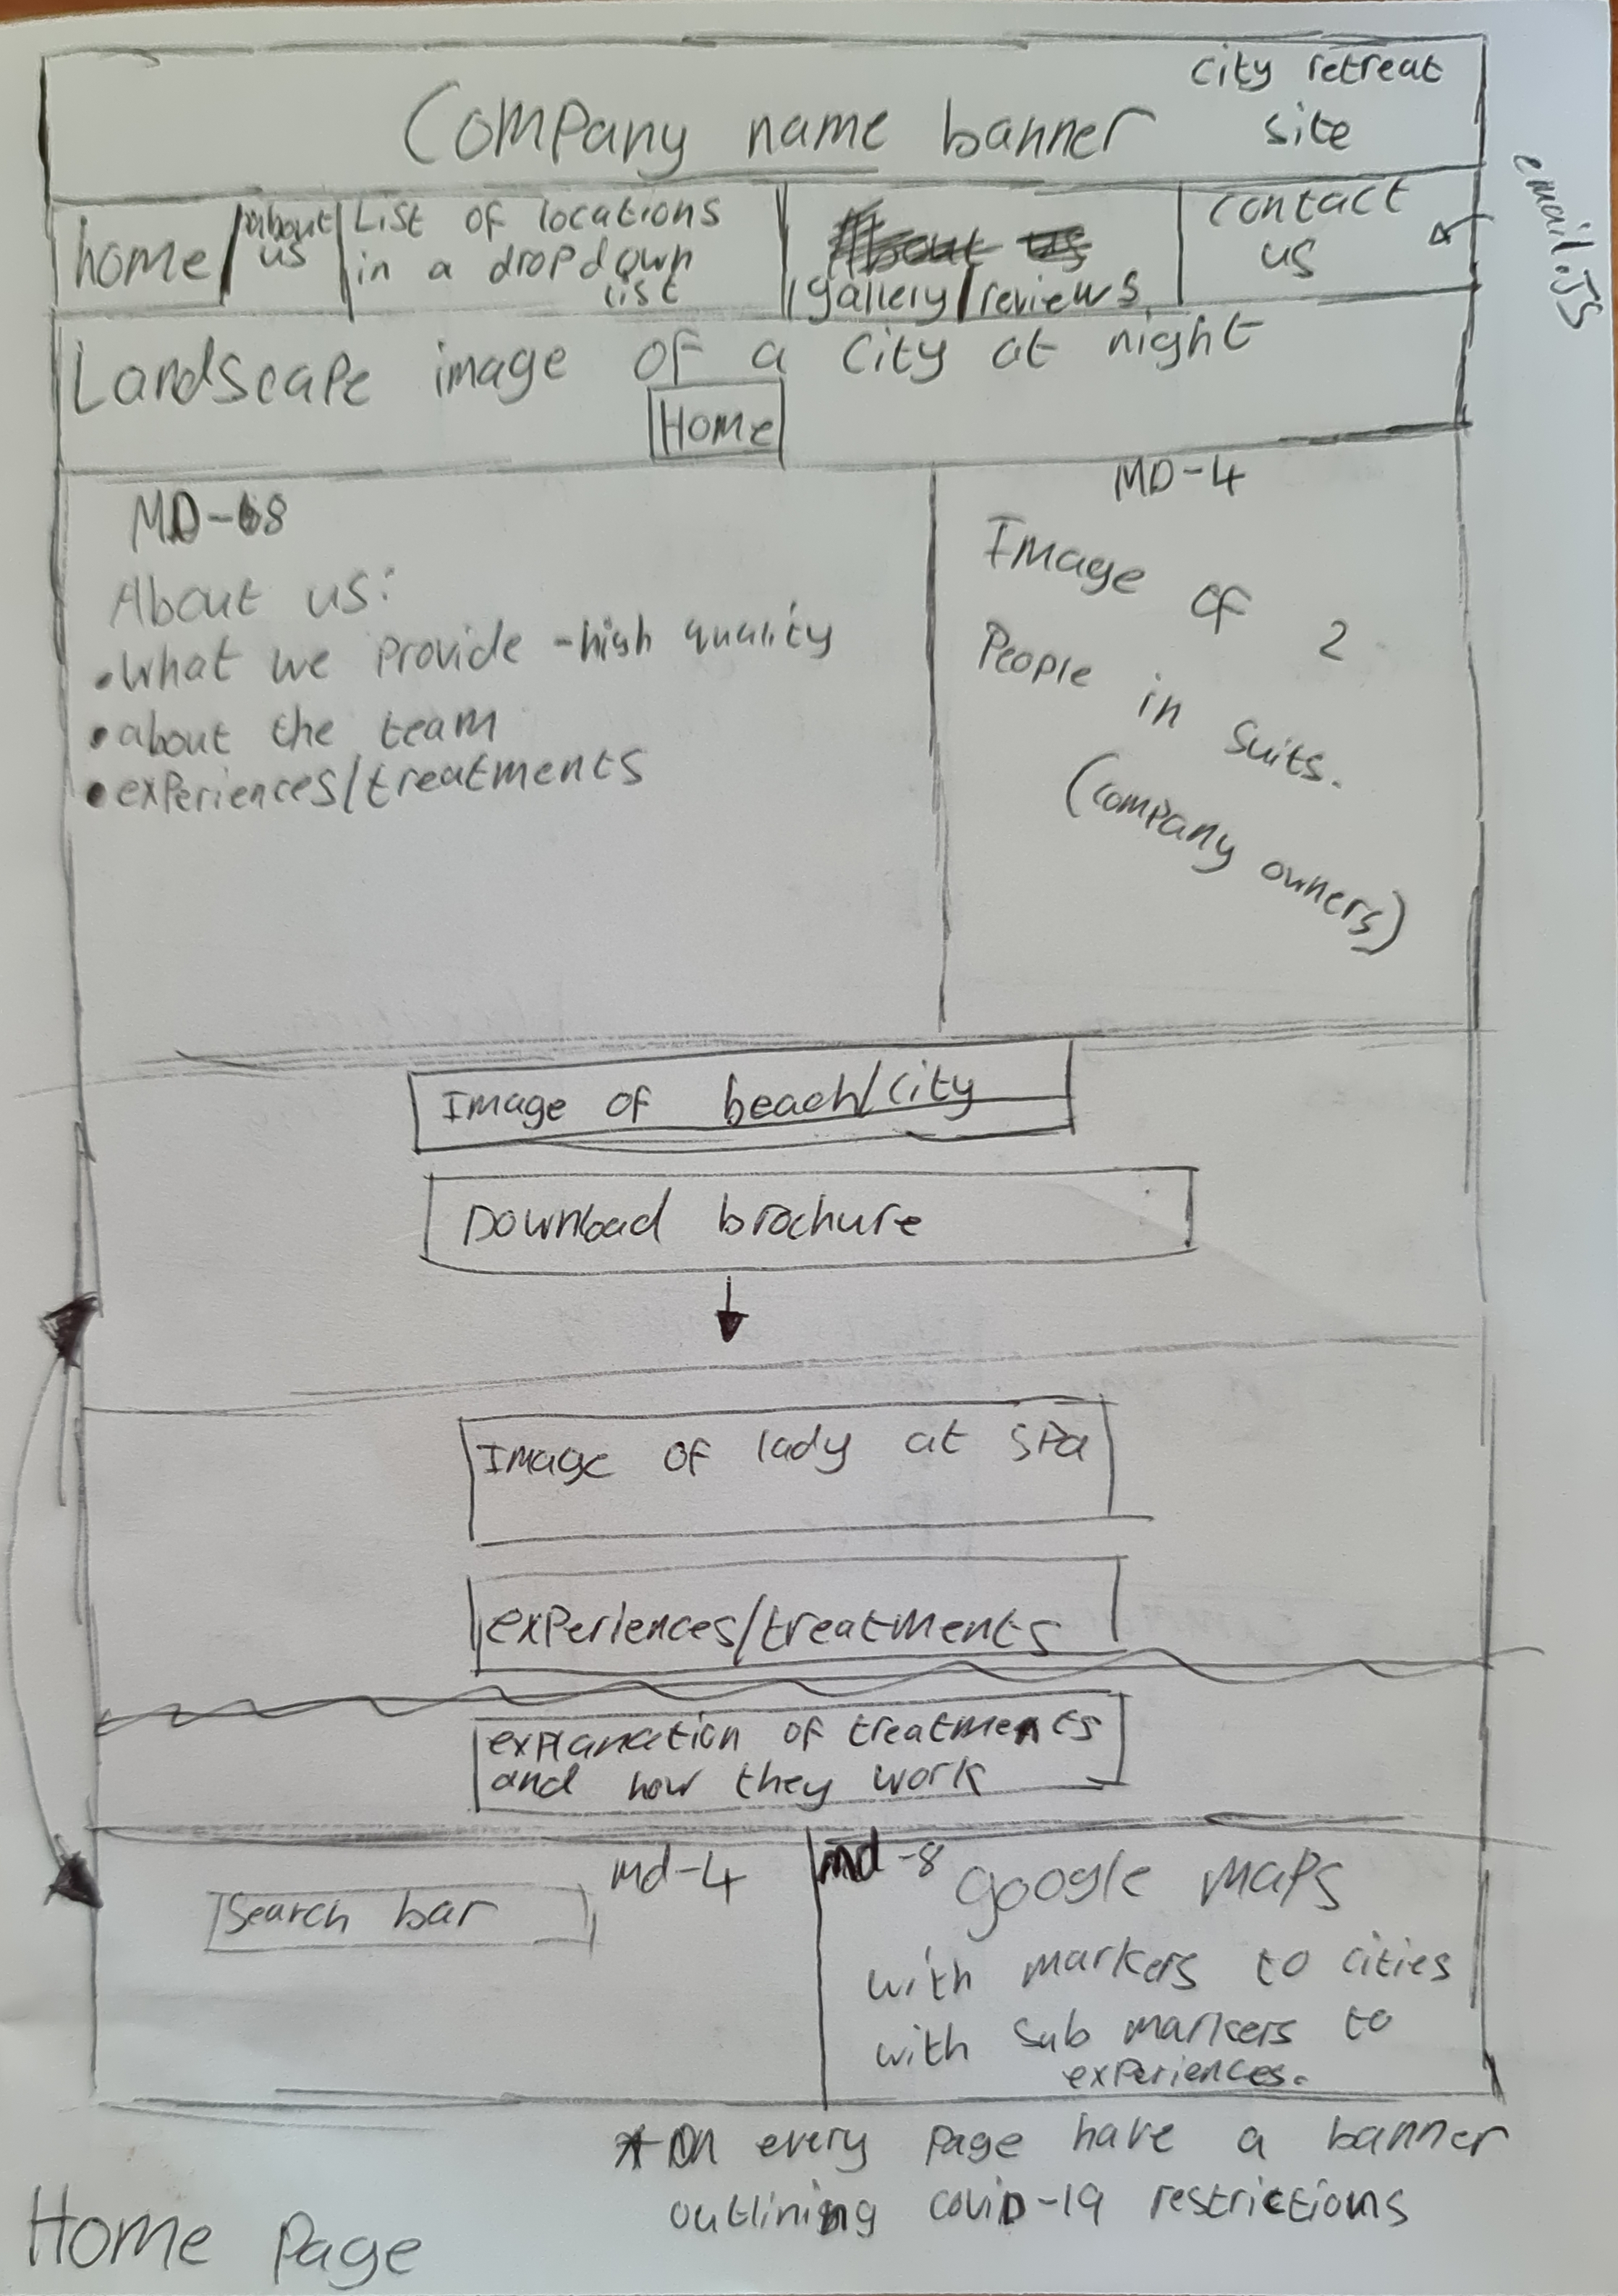 city retreat
site
Company name banner
home
about
us
List of locations
in a dropdown
list
About us
gallery/reviews
contact
us
email.JS
Landscape image of a city at night
Home
MD-8
About us:
•what we provide -high quality
•about the team
•experiences/treatments
MD-4
Image of 2
People in suits.
(company owners)
Image of beach/city
Download brochure
Image of lady at spa
experiences/treatments
explanation of treatments
and how they work
md-4
Search bar
md-8
google maps
with markers to cities
with sub markers to
experiences.
*On every page have a banner
outlining covid-19 restrictions
Home Page